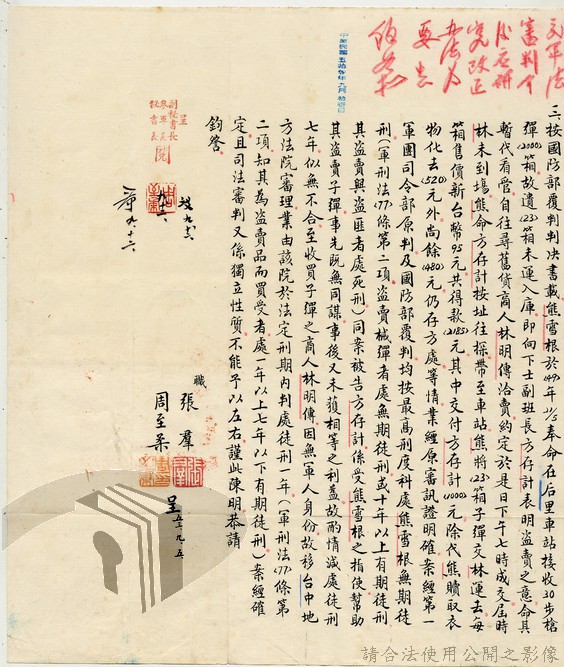 三、按國防部覆判判決書載熊雪根於(49)年11/5奉命在后里車站接收30步槍
彈(2000)箱故遺(23)箱未運入庫即向下士副班長方存計表明盜賣之意命其
暫代看管自往尋舊貨商人林明傳洽賣約定於是日下午七時成交屆時
林未到場熊命方存計按址往探帶至車站熊將(23)箱子彈交林運去每
箱售價新台幣95元共得款(2185)元其中交付方存計(1000)元除代熊贖取衣
物化去(520)元外尚餘(480)元仍存方處等情業經原審訊證明確案經第一
軍團司令部原判及國防部覆判均按最高刑度科處熊雪根無期徒
刑(軍刑法(77)條第二項盜賣械彈者處無期徒刑或十年以上有期徒刑
其盜賣與盜匪者處死刑)同案被告方存計係受熊雪根之指使幫助
其盜賣子彈事先既無同謀事後又未獲相等之利益故酌情減處徒刑
七年似無不合至收買子彈之商人林明傳因無軍人身份故移台中地
方法院審理業由該院於法定刑期內判處徒刑一年(軍刑法(77)條第
二項知其為盜賣品而買受者處一年以上七年以下有期徒刑)案經確
定且司法審判又係獨立性質不能予以左右謹此陳明恭請
鈞詧
職 張群
周至柔 呈 五十、九、五
呈
副秘書長
參軍長
秘書長
閱
九、十二
請合法使用公開之影像